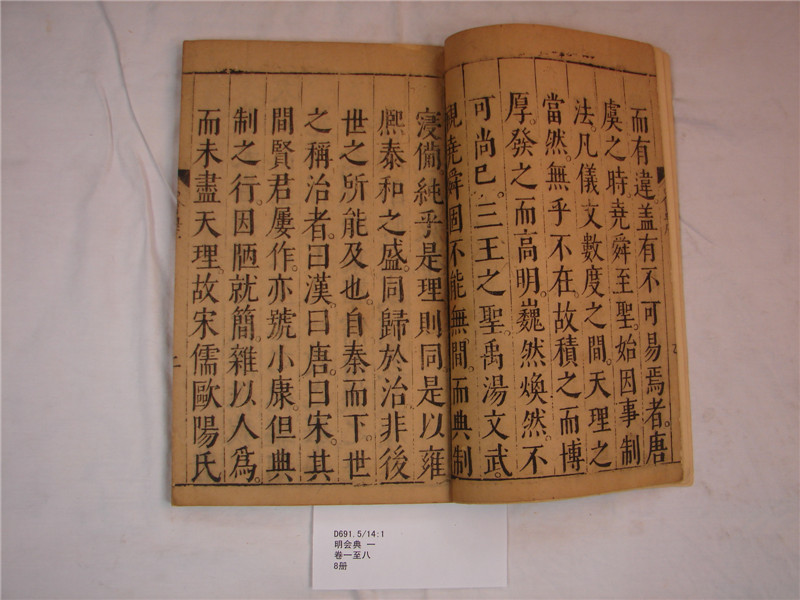 而有違盖有不可易焉者。唐
虞之時。堯舜至聖。始因事制
法。凡儀文數度之間。天理之
當然。無乎不在。故積之而博
厚。發之而高明。巍然煥然。不
可尚已。三王之聖。禹湯文武。
視堯舜固不能無間。而典制
寖備。純乎是理則同。是以雍
熈泰和之盛。同歸於治。非後
世之所能及也。自秦而下。世
之稱治者。曰漢。曰唐。曰宋。其
間賢君屢作。亦號小康。但典
制之行。因陋就簡。雜以人為。
而未盡天理。故宋儒歐陽氏
二
D691.5/14:1
明会典 一
卷一至八
8册